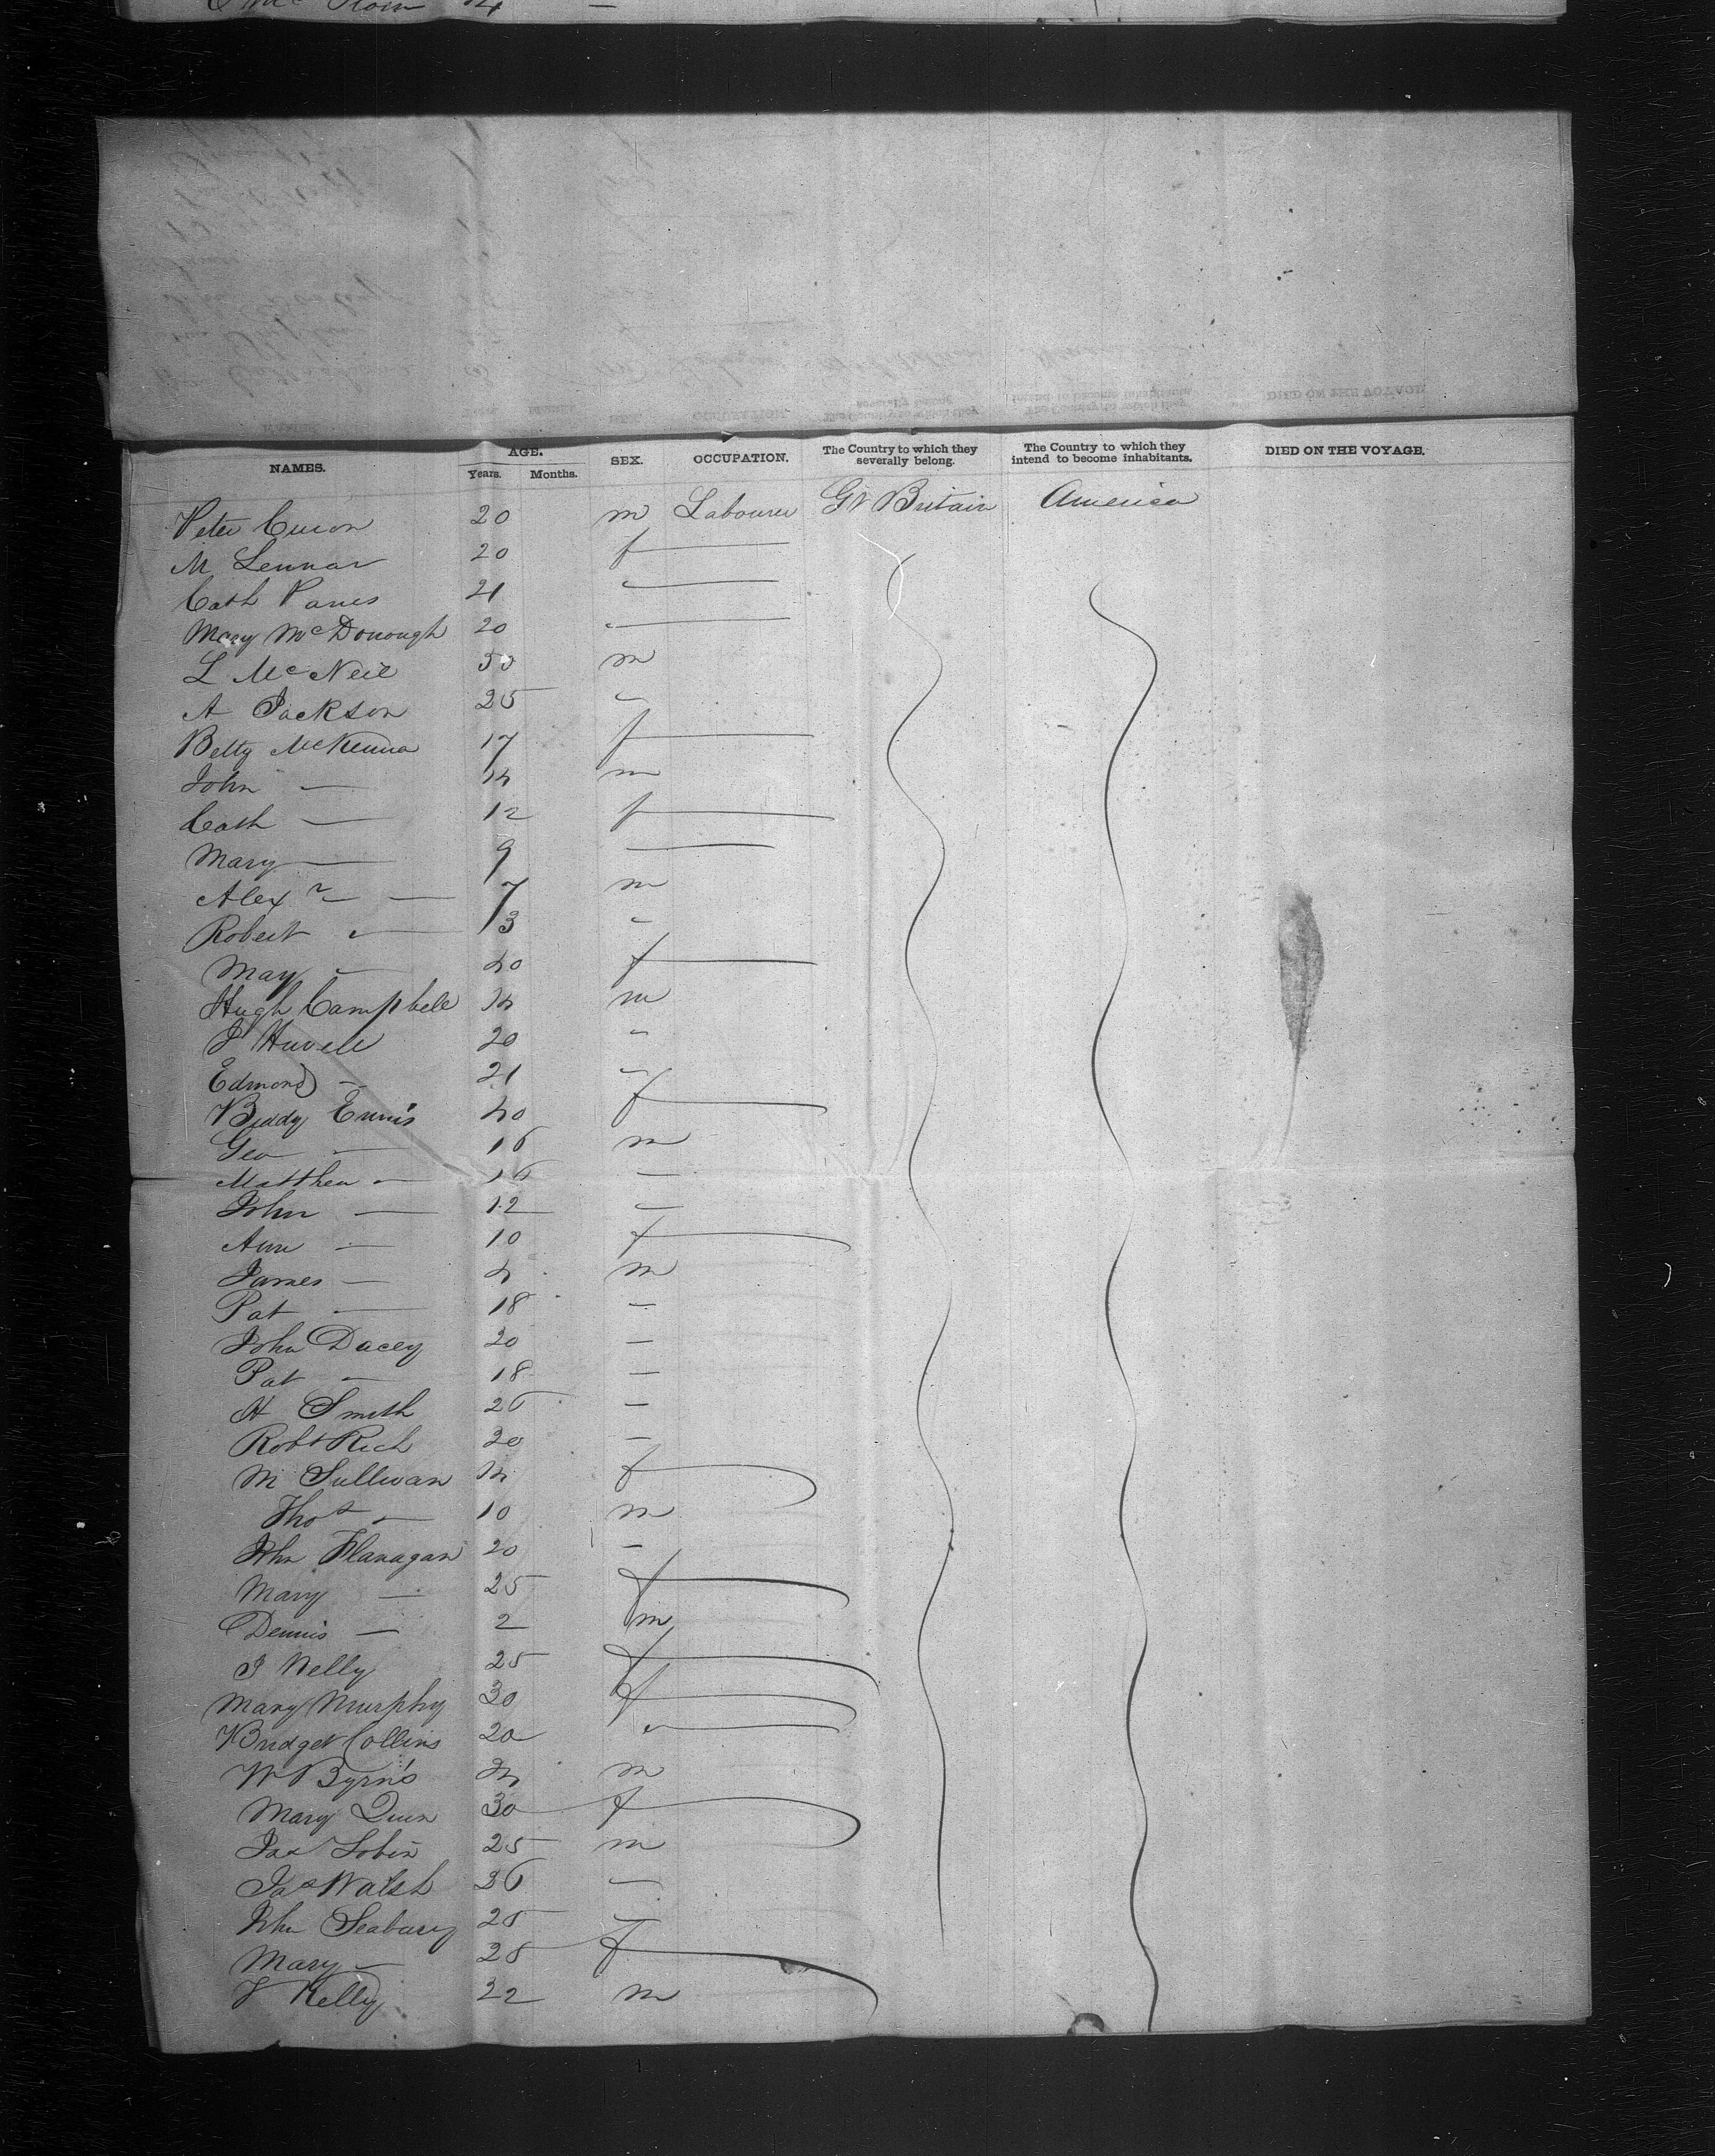 NAMES. AGE. Years. Months. SEX. OCCUPATION. The Country to which they severally belong. The Country to which they intend to become inhabitants. DIED ON THE VOYAGE.
Peter 20 m Labourer Gt Britain America
M Lennar 20 f
Cath 21
Mary McDonough 20
L McNeil 50 m
A Jackson 25
Betty McKenna 17 f
John — 14 m
Cath — 12 f
Mary — 9
Alexr — 7 m
Robert — 3
May — 40 f
Hugh Campbell m
J 20
Edmond — 21
Biddy Ennis 40 f
Geo — 16 m
Matthew — 16 —
John — 12 —
Ann — 10 f
James — 4 m
Pat — 18 —
John Dacey 20 —
Pat — 18 —
H Smith 26 —
Robt Rich 30 —
M Sullivan f
Thos — 10 m
John Flanagan 20 —
Mary — 25 f
Dennis — 2 m
25 f
Mary Murphy 30 f
Bridget Collins 20
W Byrns m
Mary Quin 30 f
Jas Tobin 25 m
Jas Walsh 36 —
John Seabury 25 —
Mary — 25 f
Kelly 22 m